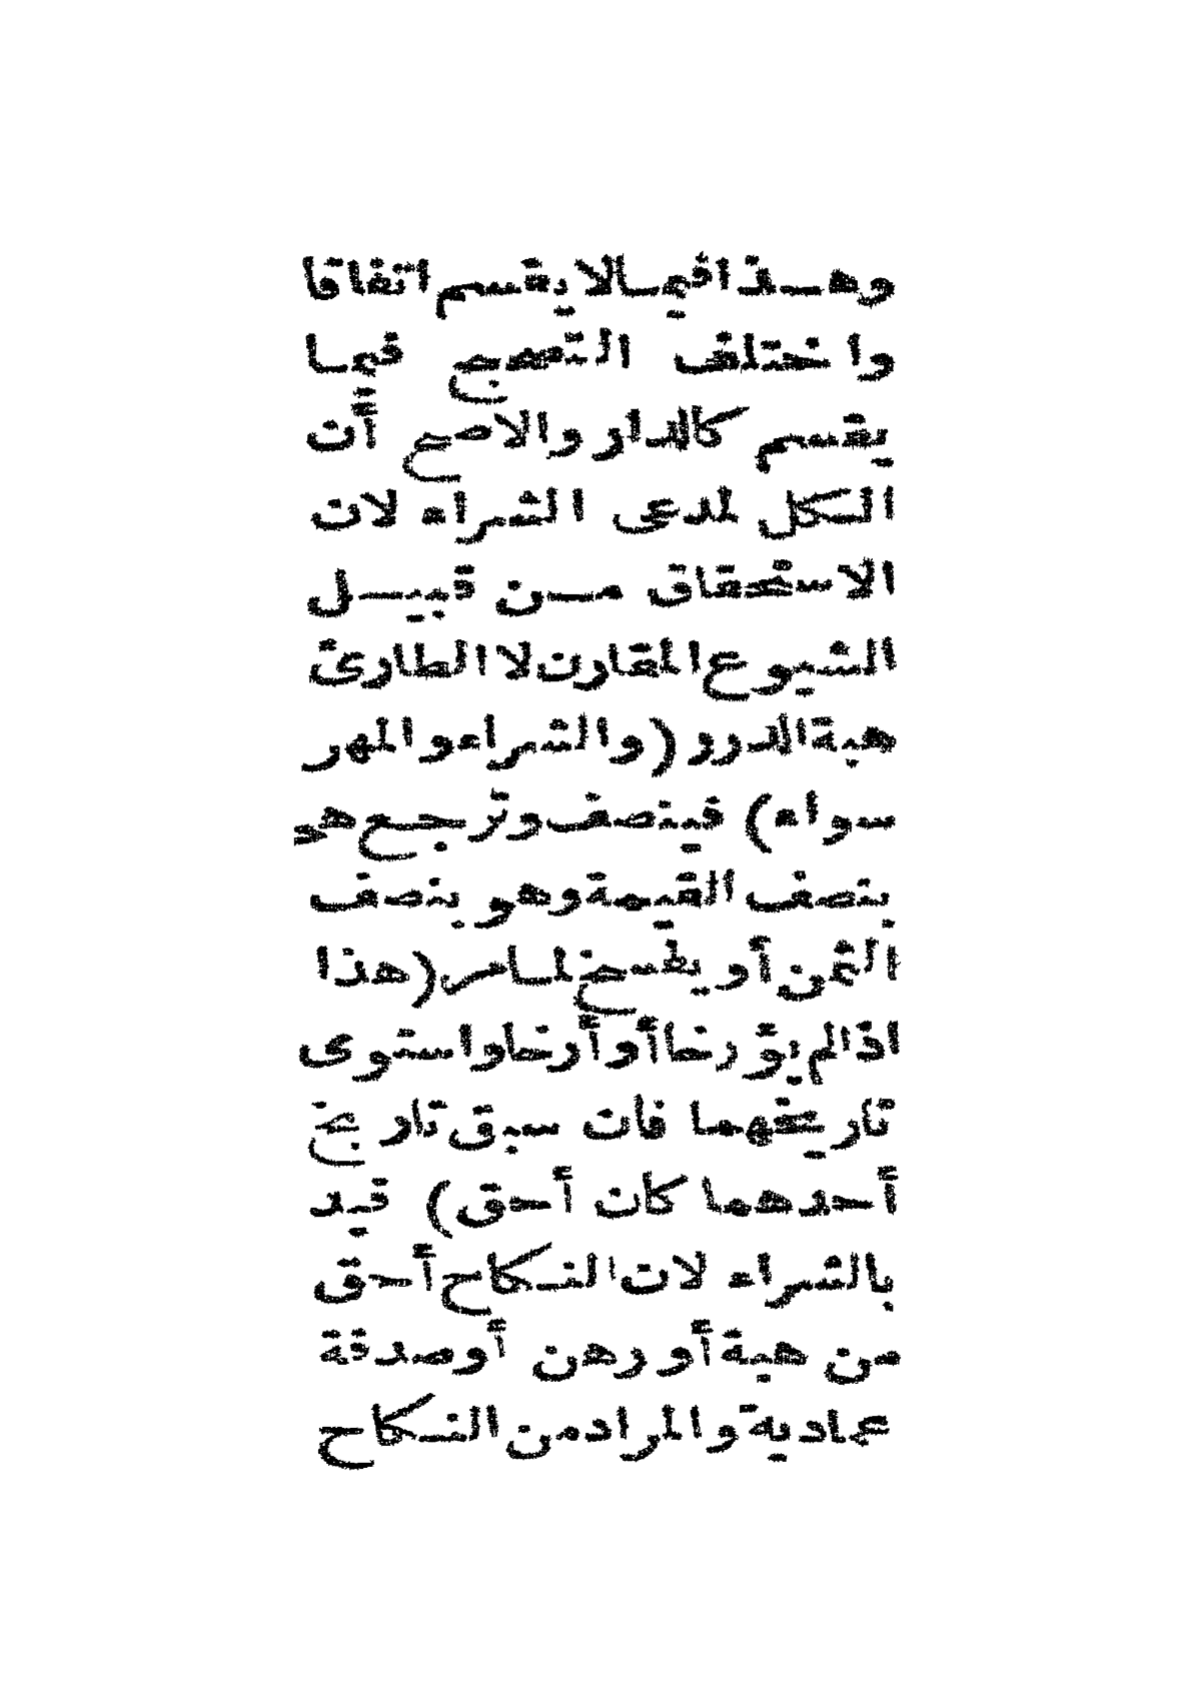 وهـذا فيما لا يقسم اتفاقا
واختلف التصحيح فيما
يقسم كالدار والاصح أن
الكل لمدعى الشراء لان
الاستحقاق من قبيل
الشيوع المقارن لا الطارئ
هبة الدرر (والشراء والمهر
سواء) فينصف وترجع هـ
بنصف القيمة وهو بنصف
الثمن أو يفسخ لما مر (هذا
اذا لم يؤرخا أو أرخا واستوى
تاريخهما فان سبق تاريخ
أحدهما كان أحق) قيد
بالشراء لان النكاح أحق
من هبة أو رهن أو صدقة
عمادية والمراد من النكاح